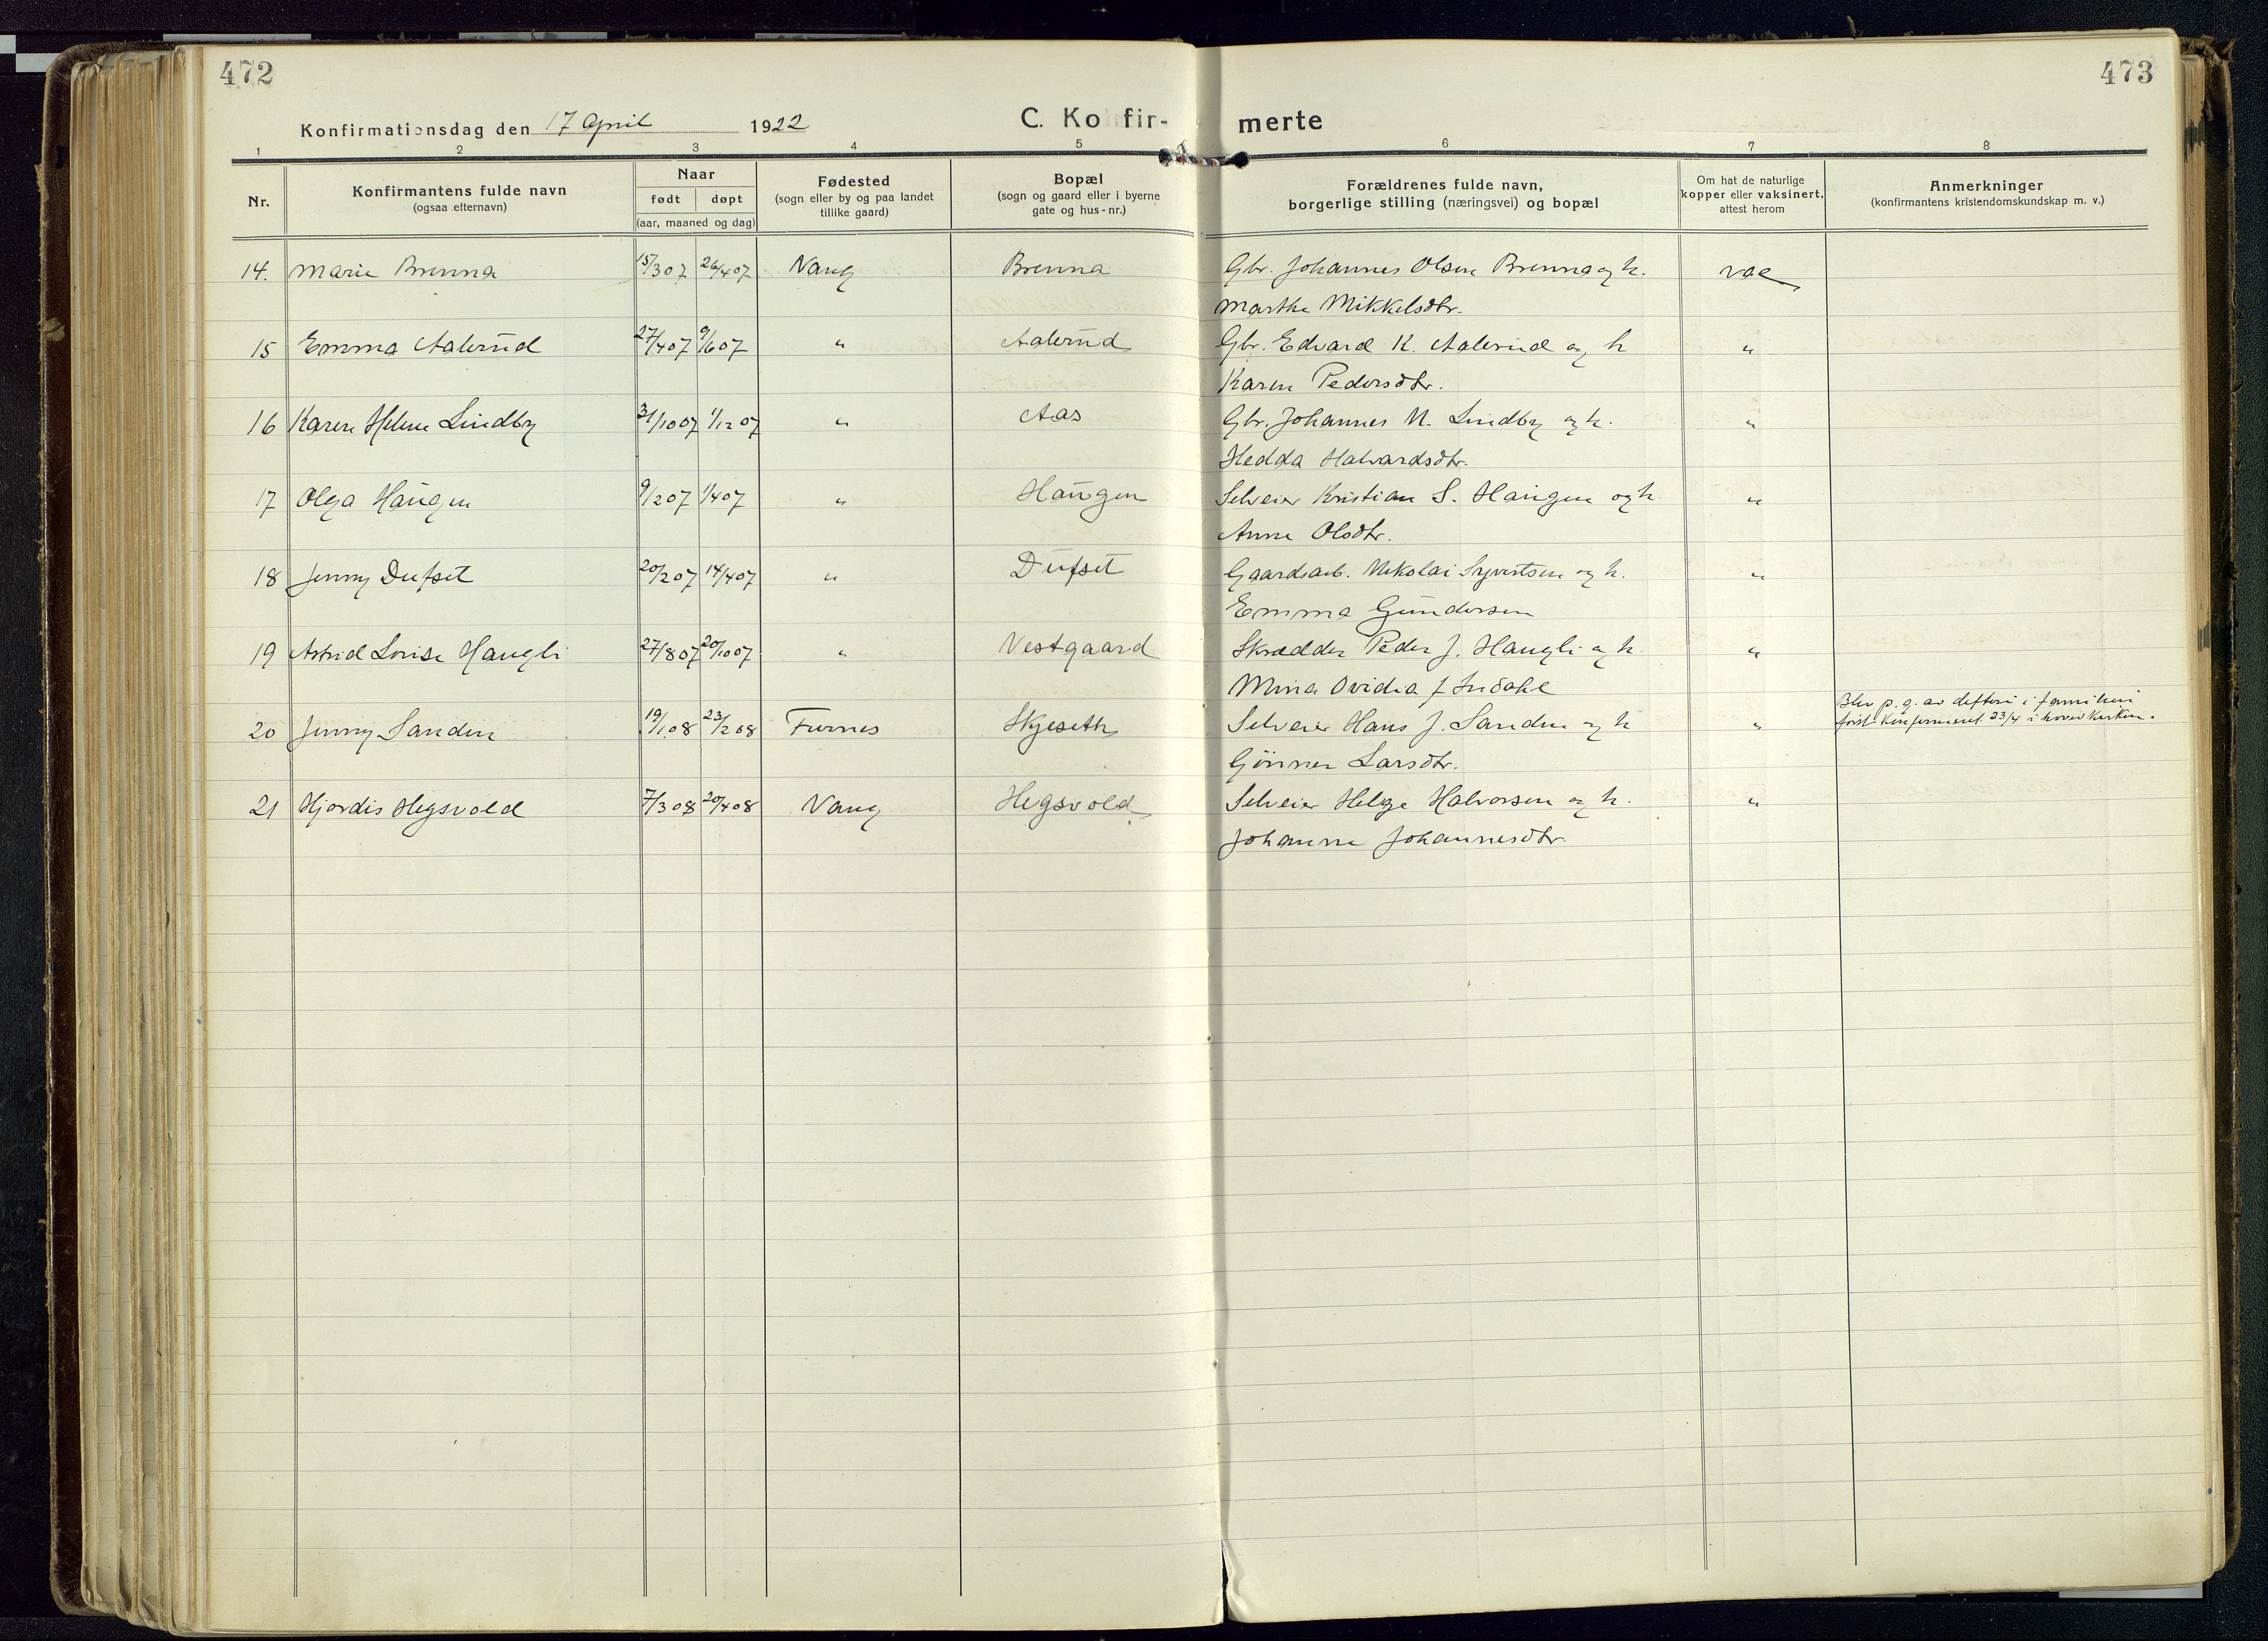 472
473
Konfirmationsdag den 17 April 1922
C. Konfir-merte
1 2 3 4 5 6 7 8
Nr.
Konfirmantens fulde navn
(ogsaa efternavn)
Naar
født døpt
(aar, maaned og dag)
Fødested
(sogn eller by og paa landet
tillike gaard)
Bopæl
(sogn og gaard eller i byerne
gate og hus-nr.)
Forældrenes fulde navn,
borgerlige stilling (næringsvei) og bopæl
Om hat de naturlige
kopper eller vaksinert,
attest herom
Anmerkninger
(konfirmantens kristendomskundskap m. v.)
14. Marie Brenna 15/3 07 26/4 07 Vang Brenna Gbr. Johannes Olsen Brenna og h. vac
Marthe Mikkelsdtr.
15 Emma Aalerud 27/4 07 9/6 07 " Aalerud Gbr. Edvard K. Aalerud og h "
Karen Pedersdtr.
16 Karen Helene Lindby 31/10 07 1/12 07 " Aas Gbr. Johannes N. Lindby og h. "
Hedda Halvardsdtr.
17 Olga Haugen 9/2 07 1/4 07 " Haugen Selveier Kristian S. Haugen og h. "
Anne Olsdtr.
18 Jenny Dufset 20/2 07 14/4 07 " Dufset Gaardsarb. Nikolai Syvertsen og h. "
Emma Gundersen
19 Astrid Lovise Haugli 27/8 07 20/10 07 " Vestgaard Skrædder Peder J. Haugli og h. "
Mina Ovidia f. Indahl
20 Jenny Sanden 19/1 08 23/2 08 Furnes Skjeseth Selveier Hans J. Sanden og h " Blev p. g. av difteri i familien
først konfirmeret 23/4 i hovedkirken.
Gönner Larsdtr.
21 Hjørdis Hegsvold 7/3 08 20/4 08 Vang Hegsvold Selveier Helge Halvorsen og h. "
Johanne Johannesdtr.